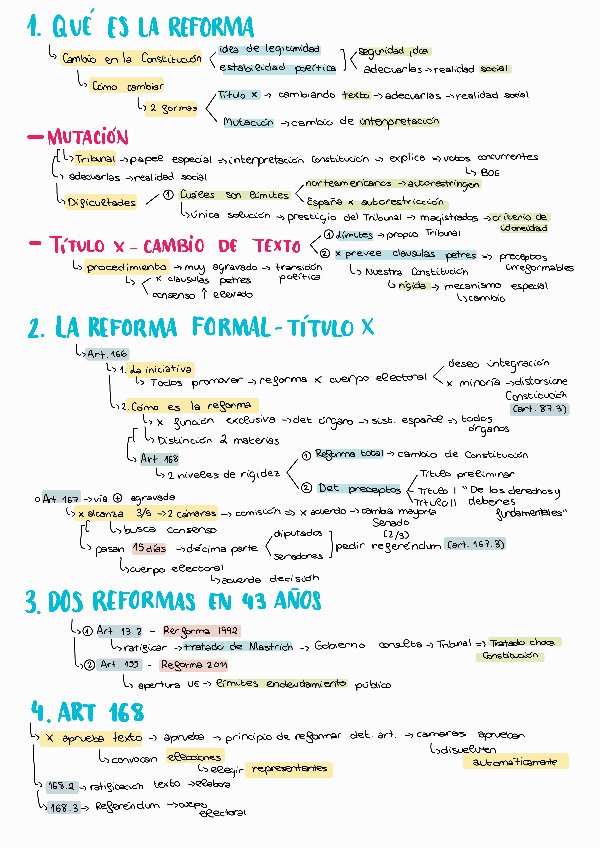 1. QUÉ ES LA REFORMA
↳ Cambio en la Constitución < idea de legitimidad
estabilidad política ] < seguridad jdca
adecuarlas → realidad social
↳ Cómo cambiar
↳ 2 formas < Título X → cambiando texto → adecuarlas → realidad social
Mutación → cambio de interpretación
— MUTACIÓN
↳ Tribunal → papel especial → interpretación Constitución → explica → votos concurrentes
↳ BOE
↳ adecuarlas → realidad social
↳ Dificultades ① Cuáles son límites < norteamericanos → autorestringen
España x autorestricción
↳ única solución → prestigio del Tribunal → magistrados → criterio de
idoneidad
— TÍTULO X - CAMBIO DE TEXTO < ① límites → propio Tribunal
② x prevee clausulas petres ⇒ preceptos
irreformables
↳ procedimiento → muy agravado → transición
política
↳ x clausulas petres
consenso ↑ elevado
↳ Nuestra Constitución
↳ rígida → mecanismo especial
↳ cambio
2. LA REFORMA FORMAL - TÍTULO X
↳ Art. 166
↳ 1. La iniciativa
↳ Todos promover → reforma x cuerpo electoral < deseo integración
x minoría → distorsione
Constitución
(art. 87.3)
↳ 2. Cómo es la reforma
↳ x función exclusiva → det órgano → sist. español ⇒ todos
órganos
↳ Distinción 2 materias
↳ Art 168
↳ 2 niveles de rigidez < ① Reforma total → cambio de Constitución
② Det. preceptos < Título preliminar
Título I "De los derechos y
deberes
fundamentales"
Título II
o Art 167 → vía ⊕ agravada
↳ x alcanza 3/5 → 2 cámaras → comisión ⇒ x acuerdo → cambia mayoría
Senado
(2/3)
↳ busca consenso
↳ pasan 15 días → décima parte < diputados
senadores ] pedir referéndum (art. 167.3)
↳ cuerpo electoral
↳ acuerda decisión
3. DOS REFORMAS EN 43 AÑOS
↳ ① Art 13.2 - Rerforma 1992
↳ ratificar → tratado de Mastrich → Gobierno consulta → Tribunal ⇒ Tratado choca
Constitución
↳ ② Art 135 - Reforma 2011
↳ apertura UE → límites endeudamiento público
4. ART 168
↳ x aprueba texto → aprueba → principio de reformar det. art. → camaras aprueban
↳ disuelven
automáticamente
↳ convocan elecciones
↳ elegir representantes
↳ 168.2 → ratificación texto → elabora
↳ 168.3 → Referéndum → cuerpo
electoral